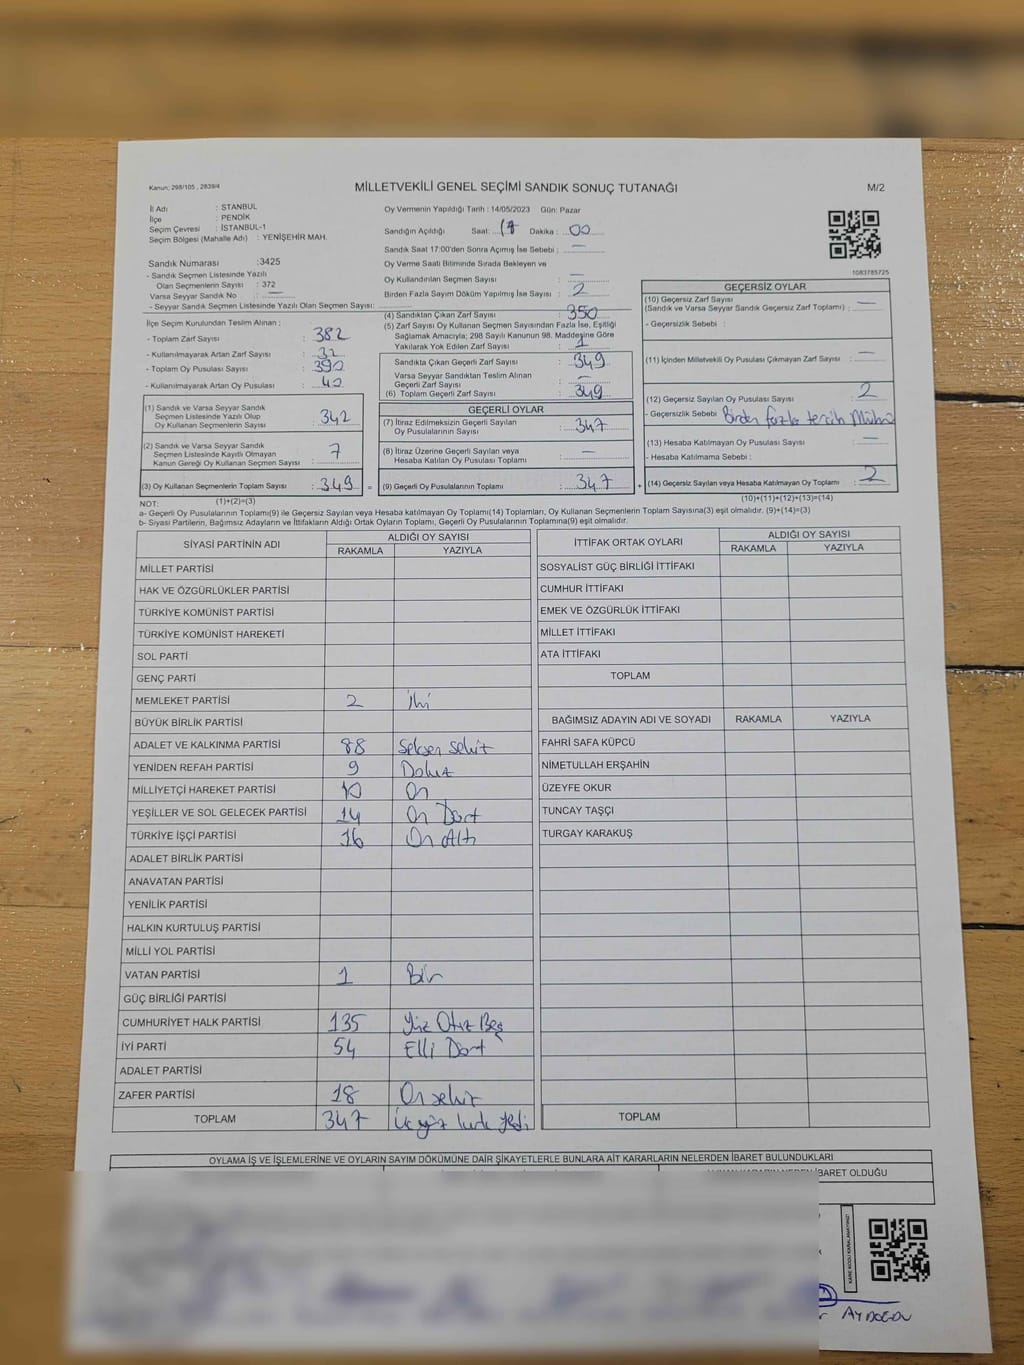 Kanun; 298/105 , 2839/4
MİLLETVEKİLİ GENEL SEÇİMİ SANDIK SONUÇ TUTANAĞI
M/2
İl Adı : STANBUL
İlçe : PENDİK
Seçim Çevresi : İSTANBUL-1
Seçim Bölgesi (Mahalle Adı) : YENİŞEHİR MAH.
Oy Vermenin Yapıldığı Tarih : 14/05/2023 Gün: Pazar
Sandığın Açıldığı Saat: 17 Dakika : 00
Sandık Saat 17:00'den Sonra Açımış İse Sebebi : —
Oy Verme Saati Bitiminde Sırada Bekleyen ve
Oy Kullandırılan Seçmen Sayısı : —
Birden Fazla Sayım Döküm Yapılmış İse Sayısı : 2
1083785725
Sandık Numarası :3425
- Sandık Seçmen Listesinde Yazılı
Olan Seçmenlerin Sayısı : 372
Varsa Seyyar Sandık No : —
- Seyyar Sandık Seçmen Listesinde Yazılı Olan Seçmen Sayısı:
İlçe Seçim Kurulundan Teslim Alınan ;
- Toplam Zarf Sayısı : 382
- Kullanılmayarak Artan Zarf Sayısı : 32
- Toplam Oy Pusulası Sayısı : 390
- Kullanılmayarak Artan Oy Pusulası : 40
(1) Sandık ve Varsa Seyyar Sandık
Seçmen Listesinde Yazılı Olup
Oy Kullanan Seçmenlerin Sayısı : 342
(2) Sandık ve Varsa Seyyar Sandık
Seçmen Listesinde Kayıtlı Olmayan
Kanun Gereği Oy Kullanan Seçmen Sayısı : 7
(3) Oy Kullanan Seçmenlerin Toplam Sayısı : 349 =
(4) Sandıktan Çıkan Zarf Sayısı : 350
(5) Zarf Sayısı Oy Kullanan Seçmen Sayısından Fazla İse, Eşitliği
Sağlamak Amacıyla; 298 Sayılı Kanunun 98. Maddesine Göre
Yakılarak Yok Edilen Zarf Sayısı : 1
Sandıkta Çıkan Geçerli Zarf Sayısı : 349
Varsa Seyyar Sandıktan Teslim Alınan
Geçerli Zarf Sayısı : —
(6) Toplam Geçerli Zarf Sayısı : 349
GEÇERLİ OYLAR
(7) İtiraz Edilmeksizin Geçerli Sayılan
Oy Pusulalarının Sayısı : 347
(8) İtiraz Üzerine Geçerli Sayılan veya
Hesaba Katılan Oy Pusulası Toplamı : —
(9) Geçerli Oy Pusulalarının Toplamı : 347 +
GEÇERSİZ OYLAR
(10) Geçersiz Zarf Sayısı
(Sandık ve Varsa Seyyar Sandık Geçersiz Zarf Toplamı) : —
- Geçersizlik Sebebi :
(11) İçinden Milletvekili Oy Pusulası Çıkmayan Zarf Sayısı : —
(12) Geçersiz Sayılan Oy Pusulası Sayısı : 2
- Geçersizlik Sebebi : Birden fazla tercih Mührü
(13) Hesaba Katılmayan Oy Pusulası Sayısı : —
- Hesaba Katılmama Sebebi :
(14) Geçersiz Sayılan veya Hesaba Katılmayan Oy Toplamı : 2
(1)+(2)=(3)
(10)+(11)+(12)+(13)=(14)
NOT:
a- Geçerli Oy Pusulalarının Toplamı(9) ile Geçersiz Sayılan veya Hesaba katılmayan Oy Toplamı(14) Toplamları, Oy Kullanan Seçmenlerin Toplam Sayısına(3) eşit olmalıdır. (9)+(14)=(3)
b- Siyasi Partilerin, Bağımsız Adayların ve İttifakların Aldığı Ortak Oyların Toplamı, Geçerli Oy Pusulalarının Toplamına(9) eşit olmalıdır.
SİYASİ PARTİNİN ADI ALDIĞI OY SAYISI
RAKAMLA YAZIYLA
MİLLET PARTİSİ
HAK VE ÖZGÜRLÜKLER PARTİSİ
TÜRKİYE KOMÜNİST PARTİSİ
TÜRKİYE KOMÜNİST HAREKETİ
SOL PARTİ
GENÇ PARTİ
MEMLEKET PARTİSİ 2 İki
BÜYÜK BİRLİK PARTİSİ
ADALET VE KALKINMA PARTİSİ 88 Seksen sekiz
YENİDEN REFAH PARTİSİ 9 Dokuz
MİLLİYETÇİ HAREKET PARTİSİ 10 On
YEŞİLLER VE SOL GELECEK PARTİSİ 14 On Dört
TÜRKİYE İŞÇİ PARTİSİ 16 On Altı
ADALET BİRLİK PARTİSİ
ANAVATAN PARTİSİ
YENİLİK PARTİSİ
HALKIN KURTULUŞ PARTİSİ
MİLLİ YOL PARTİSİ
VATAN PARTİSİ 1 Bir
GÜÇ BİRLİĞİ PARTİSİ
CUMHURİYET HALK PARTİSİ 135 Yüz Otuz Beş
İYİ PARTİ 54 Elli Dört
ADALET PARTİSİ
ZAFER PARTİSİ 18 On sekiz
TOPLAM 347 Üç yüz kırk yedi
İTTİFAK ORTAK OYLARI ALDIĞI OY SAYISI
RAKAMLA YAZIYLA
SOSYALİST GÜÇ BİRLİĞİ İTTİFAKI
CUMHUR İTTİFAKI
EMEK VE ÖZGÜRLÜK İTTİFAKI
MİLLET İTTİFAKI
ATA İTTİFAKI
TOPLAM
BAĞIMSIZ ADAYIN ADI VE SOYADI RAKAMLA YAZIYLA
FAHRİ SAFA KÜPCÜ
NİMETULLAH ERŞAHİN
ÜZEYFE OKUR
TUNCAY TAŞÇI
TURGAY KARAKUŞ
TOPLAM
OYLAMA İŞ VE İŞLEMLERİNE VE OYLARIN SAYIM DÖKÜMÜNE DAİR ŞİKAYETLERLE BUNLARA AİT KARARLARIN NELERDEN İBARET BULUNDUKLARI
İBARET OLDUĞU
AYDOĞDU